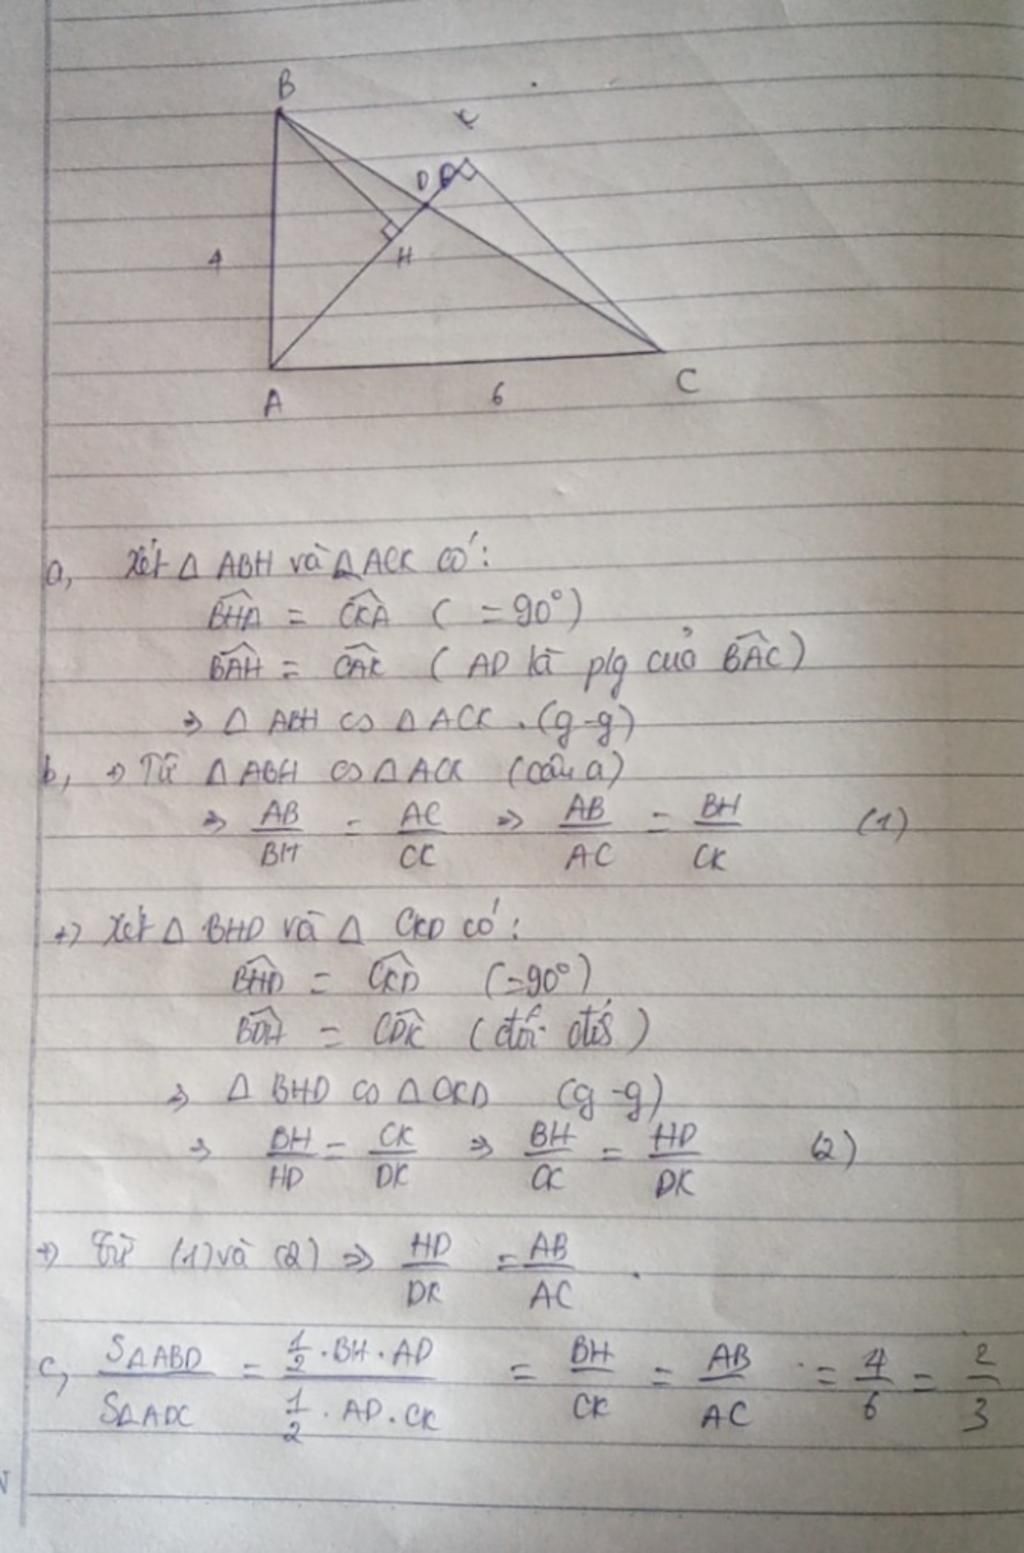 B
K
D
4
H
A
6
C
a, Xét Δ ABH và Δ ACK có:
BHA = CKA ( = 90°)
BAH = CAK ( AD là p/g của BAC )
⇒ Δ ABH ∽ Δ ACK . (g-g)
b, +) Từ Δ ABH ∽ Δ ACK (câu a)
⇒ AB/BH = AC/CK ⇒ AB/AC = BH/CK (1)
+) Xét Δ BHD và Δ CKD có:
BHD = CKD (=90°)
BDH = CDK (đối đỉnh)
⇒ Δ BHD ∽ Δ CKD (g-g)
⇒ BH/HD = CK/DK ⇒ BH/CK = HD/DK (2)
+) Từ (1) và (2) ⇒ HD/DK = AB/AC .
c, SΔABD/SΔADC = 1/2 . BH . AD / 1/2 . AD . CK = BH/CK = AB/AC = 4/6 = 2/3